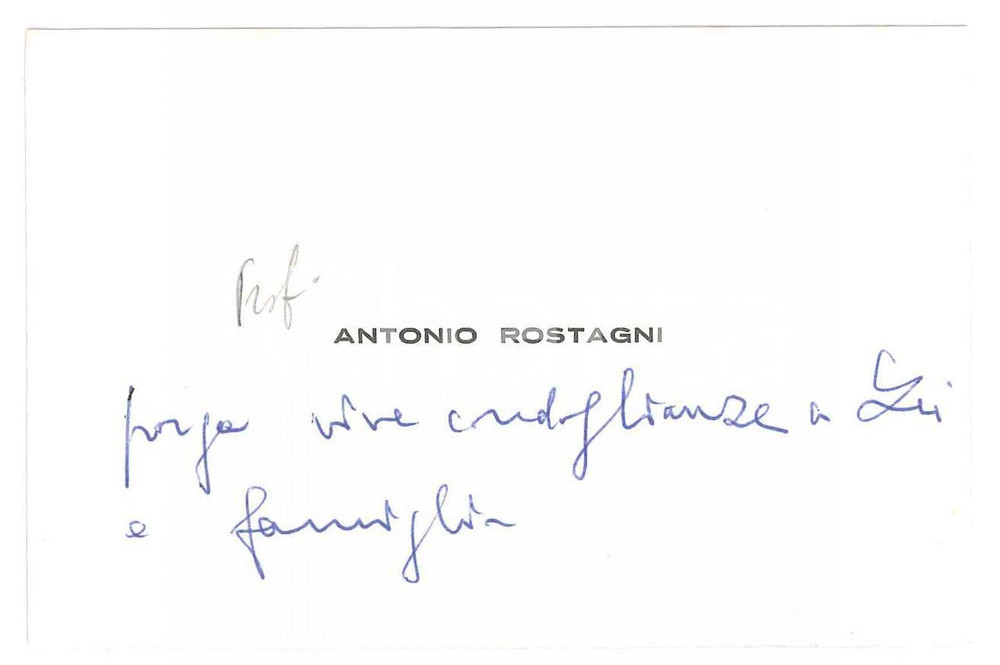 Prof.
ANTONIO ROSTAGNI
porge vive condoglianze a Lei
e famiglia